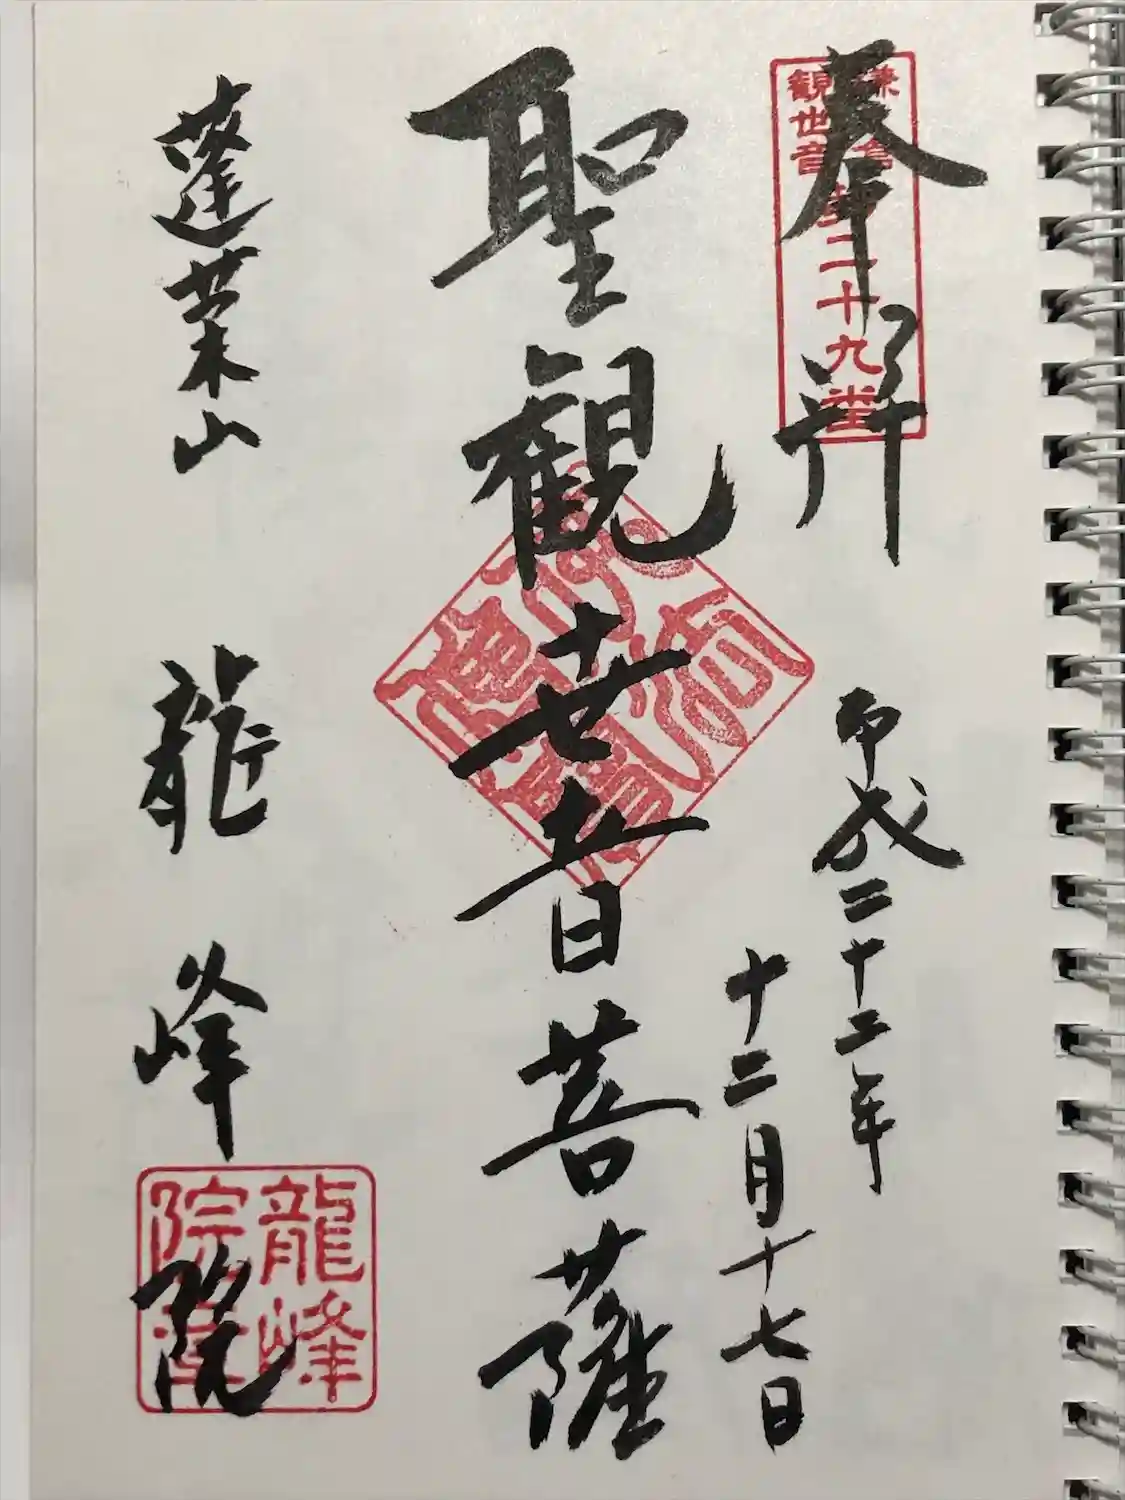 奉拝
鎌倉
観世音
第二十九番
平成二十二年
十二月十七日
聖観世音菩薩
蓬莱山
龍峰院
龍峰
院章